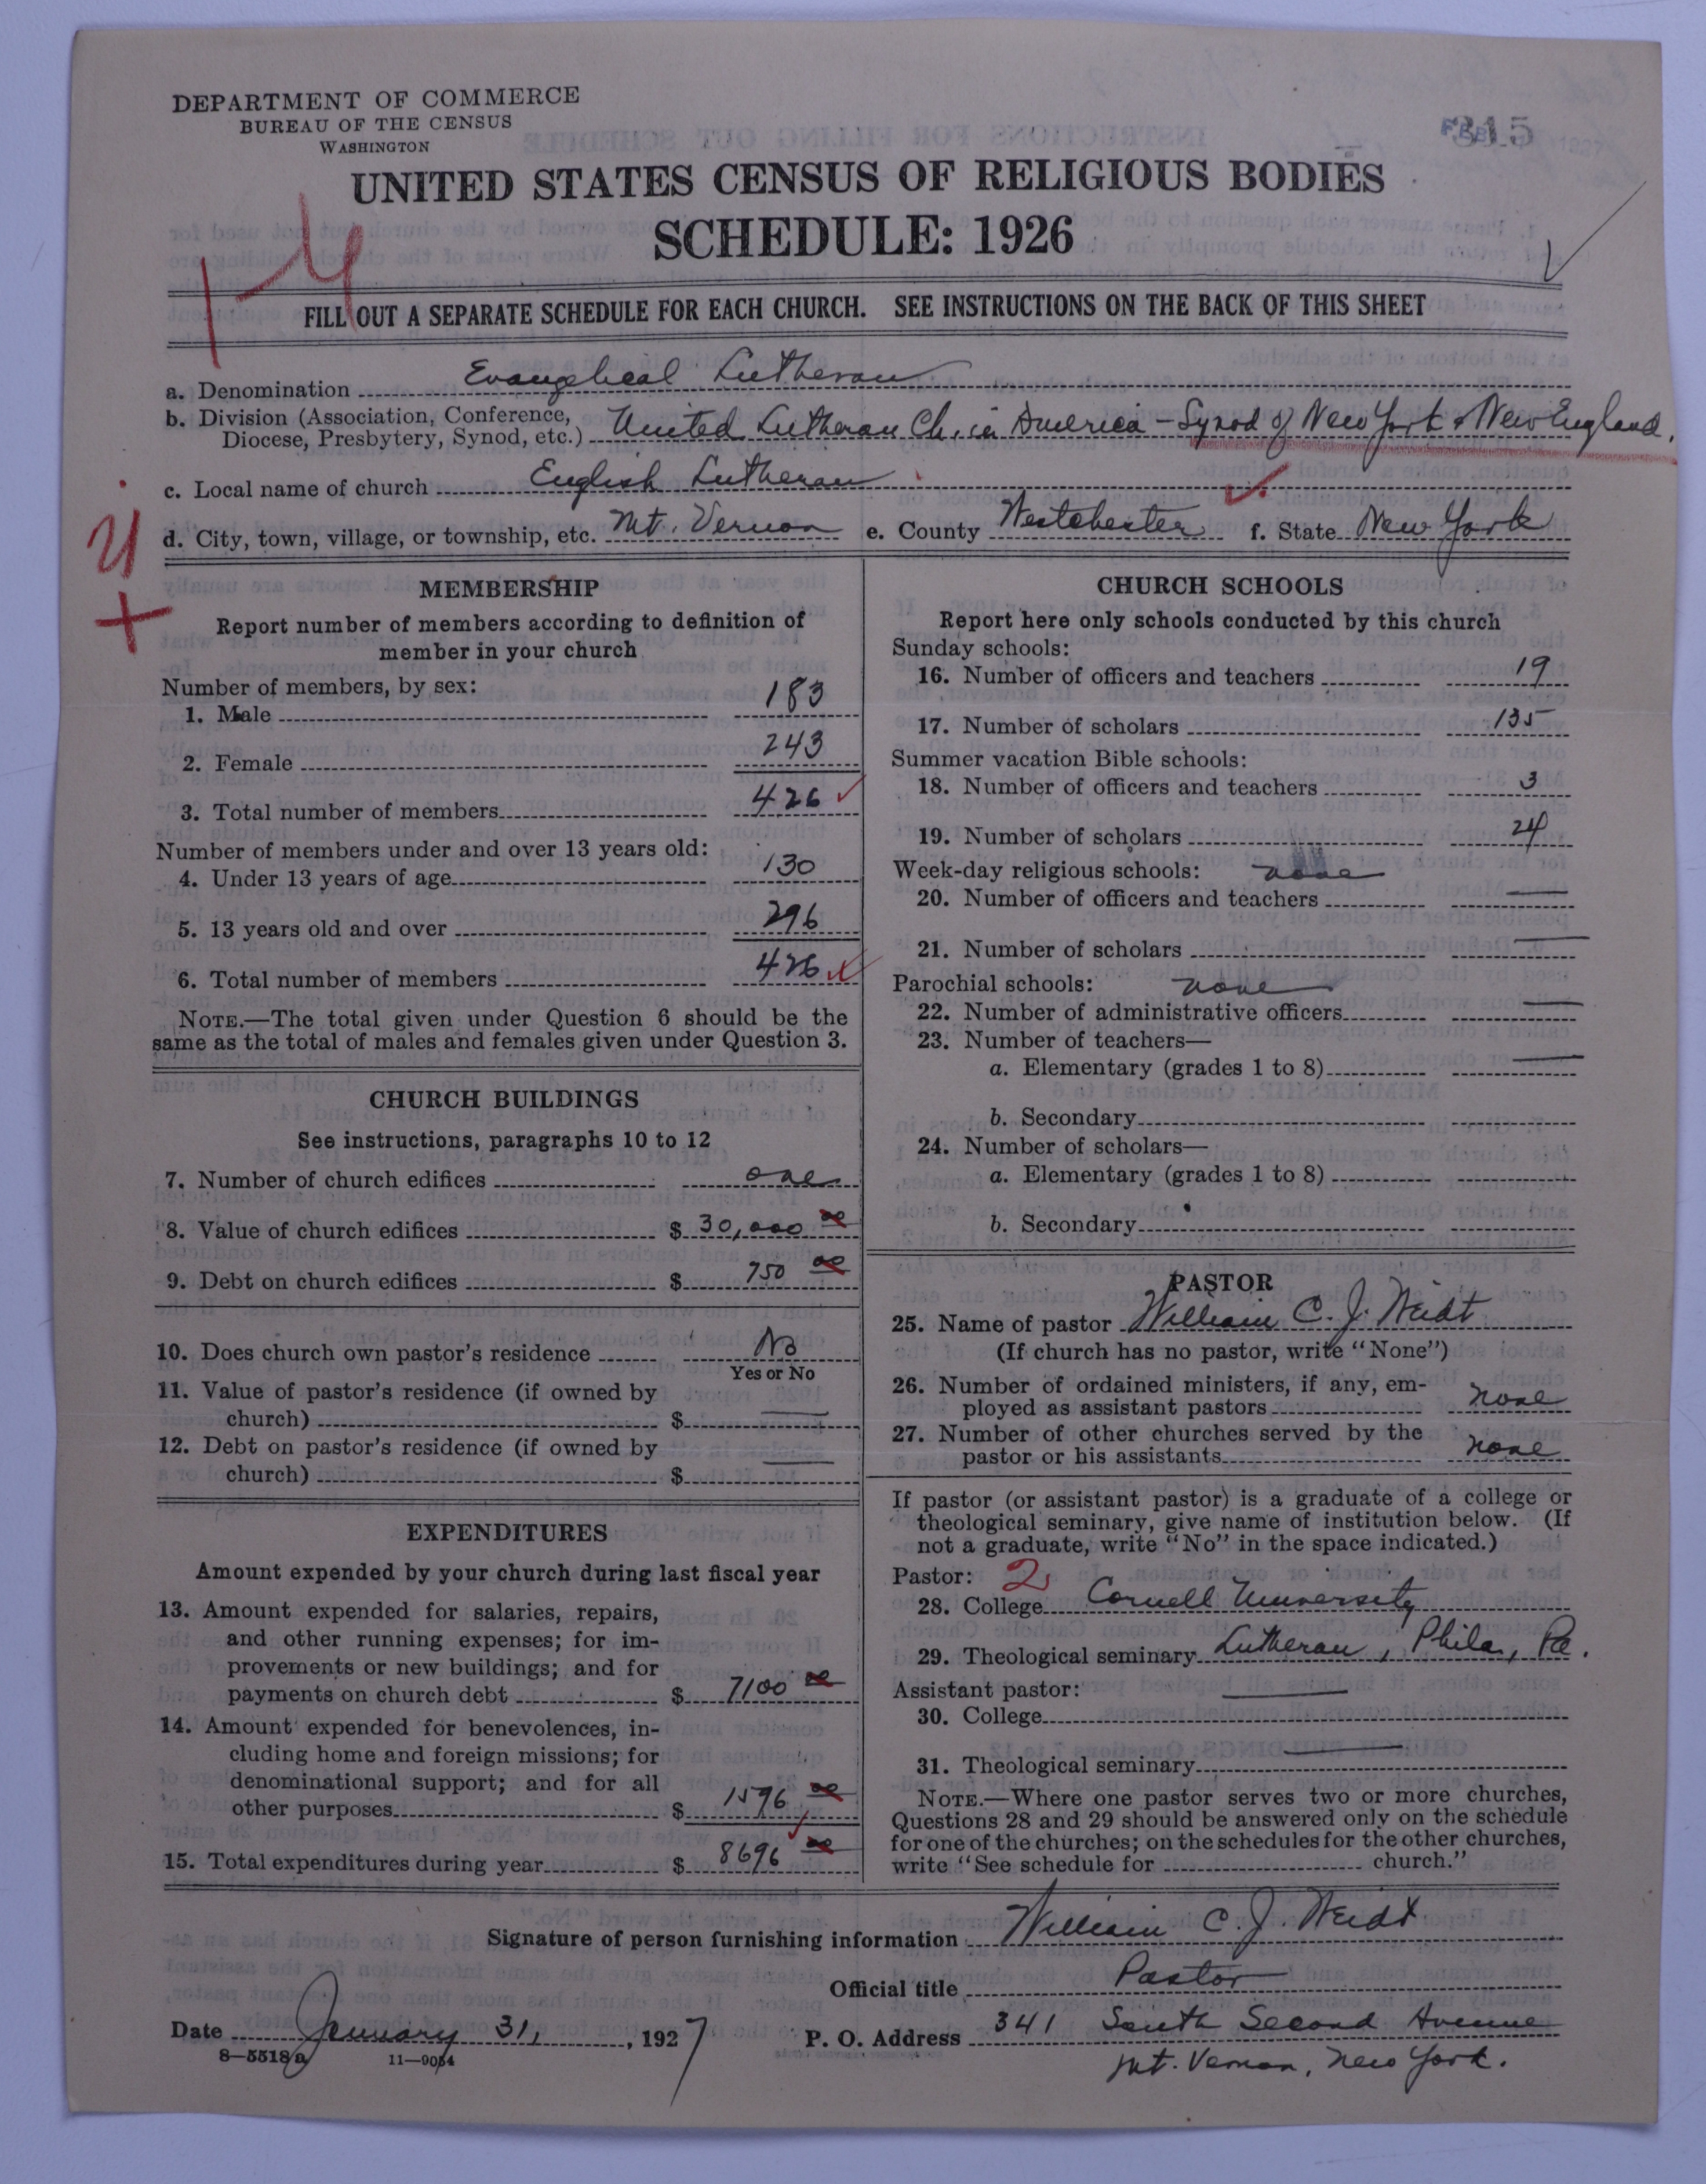 DEPARTMENT OF COMMERCE
BUREAU OF THE CENSUS
WASHINGTON
315
UNITED STATES CENSUS OF RELIGIOUS BODIES
SCHEDULE: 1926
FILL OUT A SEPARATE SCHEDULE FOR EACH CHURCH. SEE INSTRUCTIONS ON THE BACK OF THIS SHEET
a. Denomination Evangelical Lutheran
b. Division (Association, Conference,
Diocese, Presbytery, Synod, etc.) United Lutheran Ch. in America - Synod of New York & New England.
c. Local name of church English Lutheran
d. City, town, village, or township, etc. Mt. Vernon e. County Westchester f. State New York
MEMBERSHIP
Report number of members according to definition of
member in your church
Number of members, by sex:
1. Male 183
2. Female 243
3. Total number of members 426
Number of members under and over 13 years old:
4. Under 13 years of age 130
5. 13 years old and over 296
6. Total number of members 426
NOTE.—The total given under Question 6 should be the
same as the total of males and females given under Question 3.
CHURCH BUILDINGS
See instructions, paragraphs 10 to 12
7. Number of church edifices one
8. Value of church edifices $ 30,000 00
9. Debt on church edifices $ 750 00
10. Does church own pastor's residence No
Yes or No
11. Value of pastor's residence (if owned by
church) $
12. Debt on pastor's residence (if owned by
church) $
EXPENDITURES
Amount expended by your church during last fiscal year
13. Amount expended for salaries, repairs,
and other running expenses; for im-
provements or new buildings; and for
payments on church debt $ 7100 00
14. Amount expended for benevolences, in-
cluding home and foreign missions; for
denominational support; and for all
other purposes $ 1596 00
15. Total expenditures during year $ 8696 00
CHURCH SCHOOLS
Report here only schools conducted by this church
Sunday schools:
16. Number of officers and teachers 19
17. Number of scholars 135
Summer vacation Bible schools:
18. Number of officers and teachers 3
19. Number of scholars 24
Week-day religious schools: none
20. Number of officers and teachers
21. Number of scholars
Parochial schools: none
22. Number of administrative officers
23. Number of teachers—
a. Elementary (grades 1 to 8)
b. Secondary
24. Number of scholars—
a. Elementary (grades 1 to 8)
b. Secondary
PASTOR
25. Name of pastor William C. J. Weidt
(If church has no pastor, write "None")
26. Number of ordained ministers, if any, em-
ployed as assistant pastors none
27. Number of other churches served by the
pastor or his assistants none
If pastor (or assistant pastor) is a graduate of a college or
theological seminary, give name of institution below. (If
not a graduate, write "No" in the space indicated.)
Pastor: 2
28. College Cornell University
29. Theological seminary Lutheran, Phila, Pa.
Assistant pastor:
30. College
31. Theological seminary
NOTE.—Where one pastor serves two or more churches,
Questions 28 and 29 should be answered only on the schedule
for one of the churches; on the schedules for the other churches,
write "See schedule for church."
Signature of person furnishing information William C. J. Weidt
Official title Pastor
Date January 31, 1927 P. O. Address 341 South Second Avenue
8—5518a 11—9054 Mt. Vernon, New York.